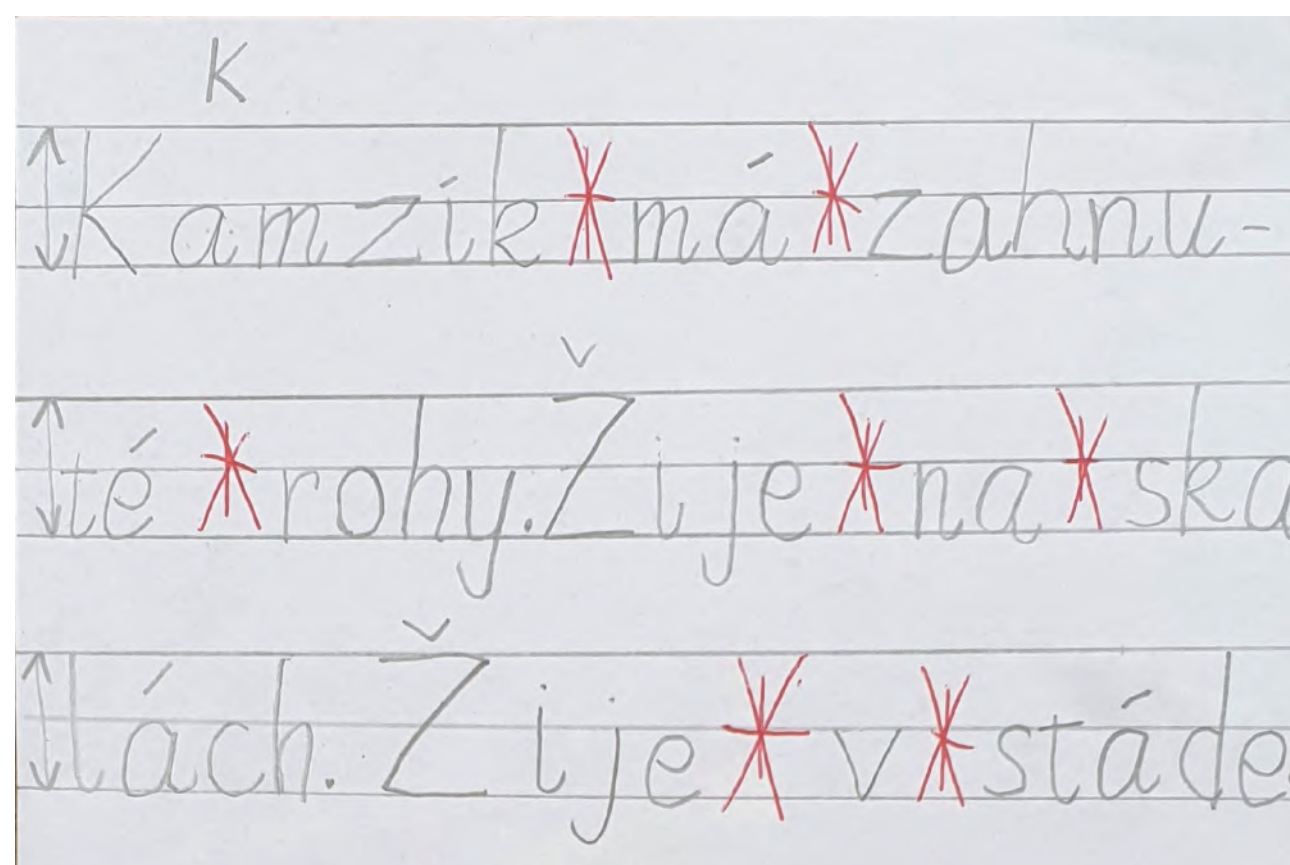 K
Kamzík * má * zahnu-
té * rohy. Žije * na * ska
lách. Žije * v * stáde